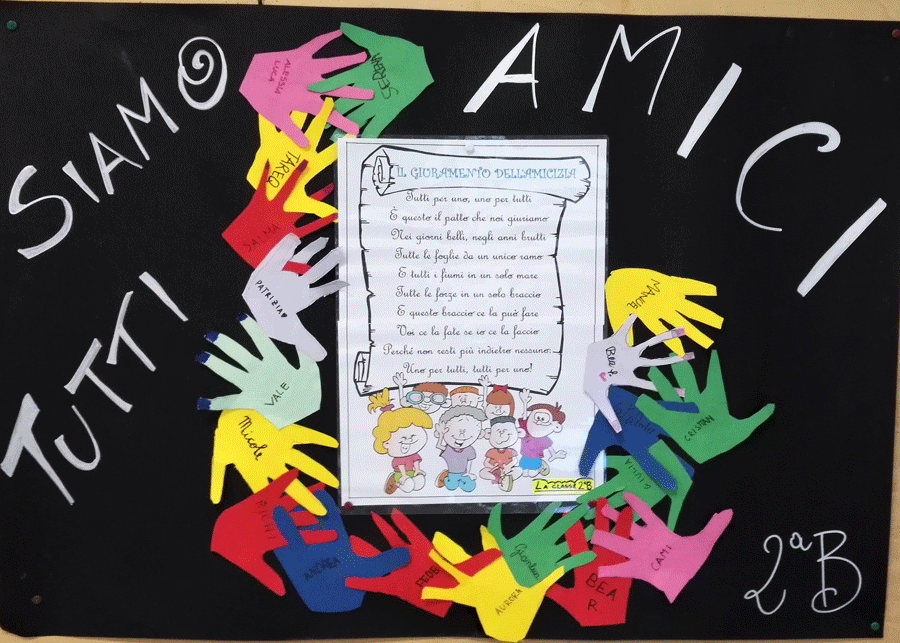 SIAMO
TUTTI
AMICI
ALESSIA
LUCA
SERENA
TAREQ
SALMA
PATRIZIA
VALE
Nicole
ANDREA
FEDE
AURORA
BEA
R.
CAMI
GIULIA
CRISTIAN
Bea
MANUEL
IL GIURAMENTO DELL'AMICIZIA
Tutti per uno, uno per tutti
È questo il patto che noi giuriamo
Nei giorni belli, negli anni brutti
Tutte le foglie da un unico ramo
E tutti i fiumi in un solo mare
Tutte le forze in un solo braccio
E questo braccio ce la può fare
Voi ce la fate se io ce la faccio
Perché non resti più indietro nessuno:
Uno per tutti, tutti per uno!
LA CLASSE 2ªB
2ªB